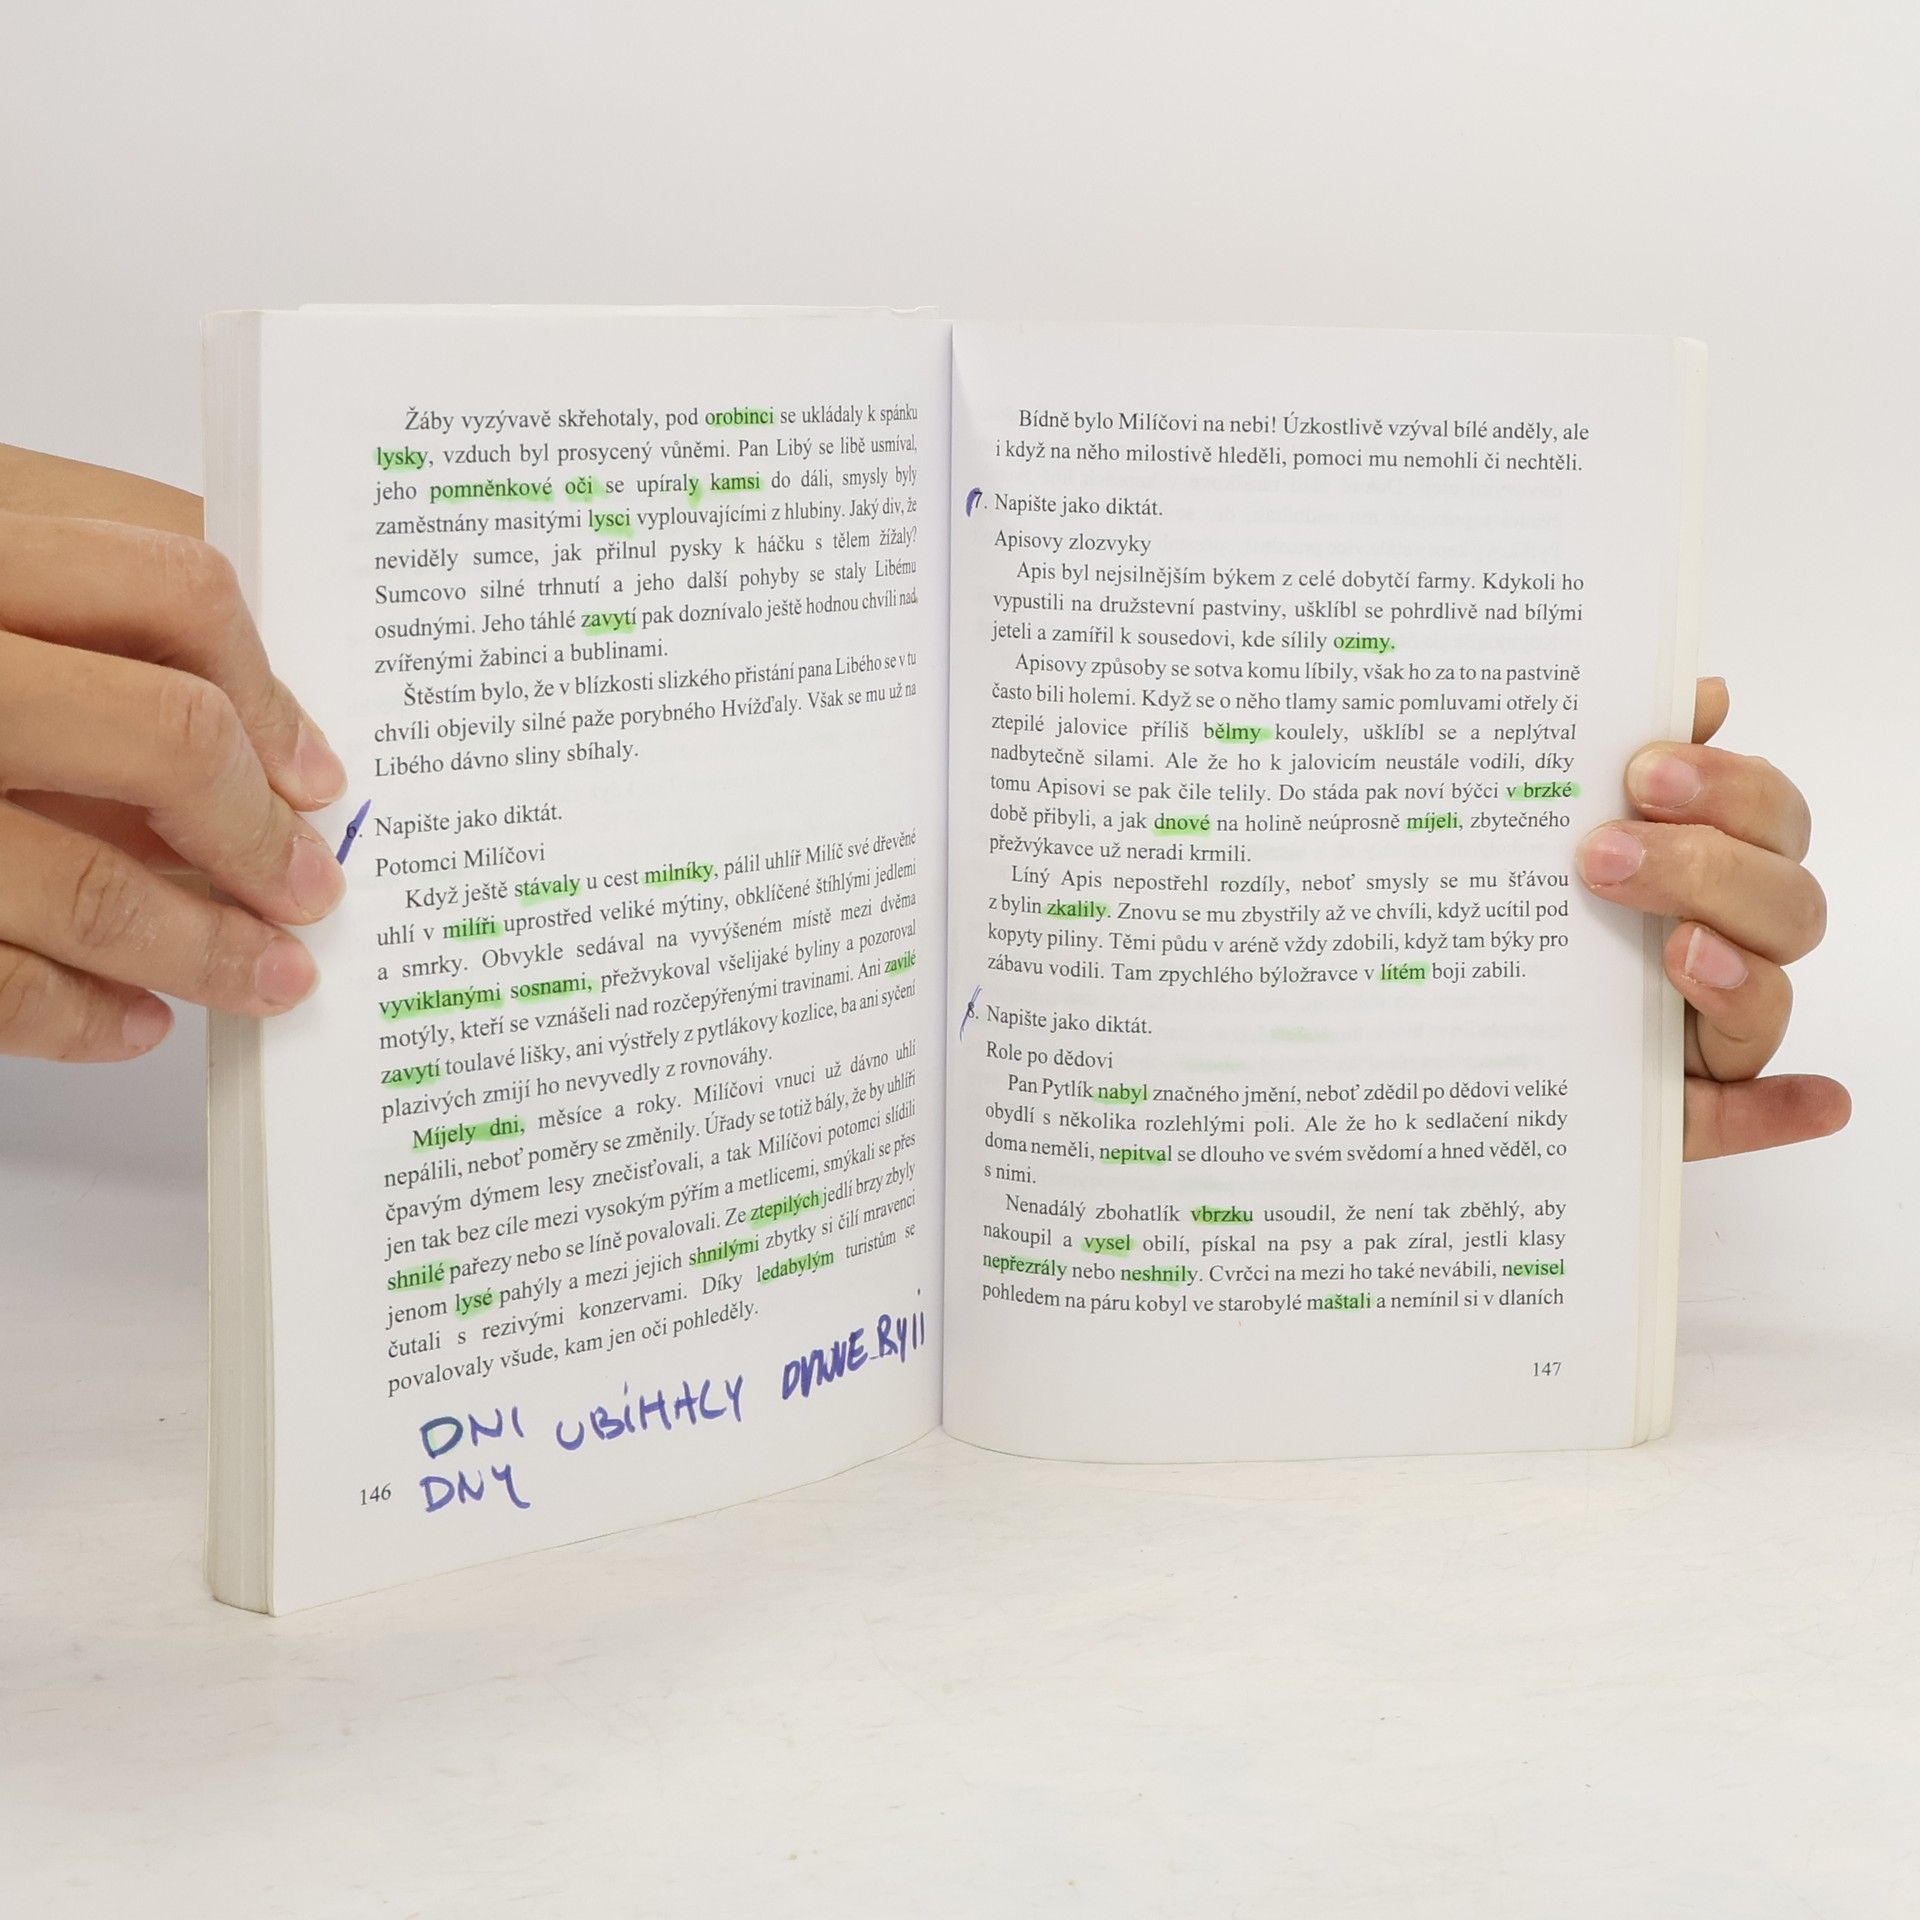 Žáby vyzývavě skřehotaly, pod orobinci se ukládaly k spánku
lysky, vzduch byl prosycený vůněmi. Pan Libý se libě usmíval,
jeho pomněnkové oči se upíraly kamsi do dáli, smysly byly
zaměstnány masitými lysci vyplouvajícími z hlubiny. Jaký div, že
neviděly sumce, jak přilnul pysky k háčku s tělem žížaly?
Sumcovo silné trhnutí a jeho další pohyby se staly Libému
osudnými. Jeho táhlé zavytí pak doznívalo ještě hodnou chvíli nad
zvířenými žabinci a bublinami.
Štěstím bylo, že v blízkosti slizkého přistání pana Libého se v tu
chvíli objevily silné paže porybného Hvížďaly. Však se mu už na
Libého dávno sliny sbíhaly.
6. Napište jako diktát.
Potomci Milíčovi
Když ještě stávaly u cest milníky, pálil uhlíř Milíč své dřevěné
uhlí v milíři uprostřed veliké mýtiny, obklíčené štíhlými jedlemi
a smrky. Obvykle sedával na vyvýšeném místě mezi dvěma
vyviklanými sosnami, přežvykoval všelijaké byliny a pozoroval
motýly, kteří se vznášeli nad rozčepýřenými travinami. Ani zavilé
zavytí toulavé lišky, ani výstřely z pytlákovy kozlice, ba ani syčení
plazivých zmijí ho nevyvedly z rovnováhy.
Míjely dni, měsíce a roky. Milíčovi vnuci už dávno uhlí
nepálili, neboť poměry se změnily. Úřady se totiž bály, že by uhlíři
čpavým dýmem lesy znečisťovali, a tak Milíčovi potomci slídili
jen tak bez cíle mezi vysokým pýřím a metlicemi, smýkali se přes
shnilé pařezy nebo se líně povalovali. Ze ztepilých jedlí brzy zbyly
jenom lysé pahýly a mezi jejich shnilými zbytky si čilí mravenci
čutali s rezivými konzervami. Díky ledabylým turistům se
povalovaly všude, kam jen oči pohleděly.
DNI UBÍHALY
DNY
146
Bídně bylo Milíčovi na nebi! Úzkostlivě vzýval bílé anděly, ale
i když na něho milostivě hleděli, pomoci mu nemohli či nechtěli.
7. Napište jako diktát.
Apisovy zlozvyky
Apis byl nejsilnějším býkem z celé dobytčí farmy. Kdykoli ho
vypustili na družstevní pastviny, ušklíbl se pohrdlivě nad bílými
jeteli a zamířil k sousedovi, kde sílily ozimy.
Apisovy způsoby se sotva komu líbily, však ho za to na pastvině
často bili holemi. Když se o něho tlamy samic pomluvami otřely či
ztepilé jalovice příliš bělmy koulely, ušklíbl se a neplýtval
nadbytečně silami. Ale že ho k jalovicím neustále vodili, díky
tomu Apisovi se pak čile telily. Do stáda pak noví býčci v brzké
době přibyli, a jak dnové na holině neúprosně míjeli, zbytečného
přežvýkavce už neradi krmili.
Líný Apis nepostřehl rozdíly, neboť smysly se mu šťávou
z bylin zkalily. Znovu se mu zbystřily až ve chvíli, když ucítil pod
kopyty piliny. Těmi půdu v aréně vždy zdobili, když tam býky pro
zábavu vodili. Tam zpychlého býložravce v lítém boji zabili.
8. Napište jako diktát.
Role po dědovi
Pan Pytlík nabyl značného jmění, neboť zdědil po dědovi veliké
obydlí s několika rozlehlými poli. Ale že ho k sedlačení nikdy
doma neměli, nepitval se dlouho ve svém svědomí a hned věděl, co
s nimi.
Nenadálý zbohatlík vbrzku usoudil, že není tak zběhlý, aby
nakoupil a vysel obilí, pískal na psy a pak zíral, jestli klasy
nepřezrály nebo neshnily. Cvrčci na mezi ho také nevábili, nevisel
pohledem na páru kobyl ve starobylé maštali a nemínil si v dlaních
147